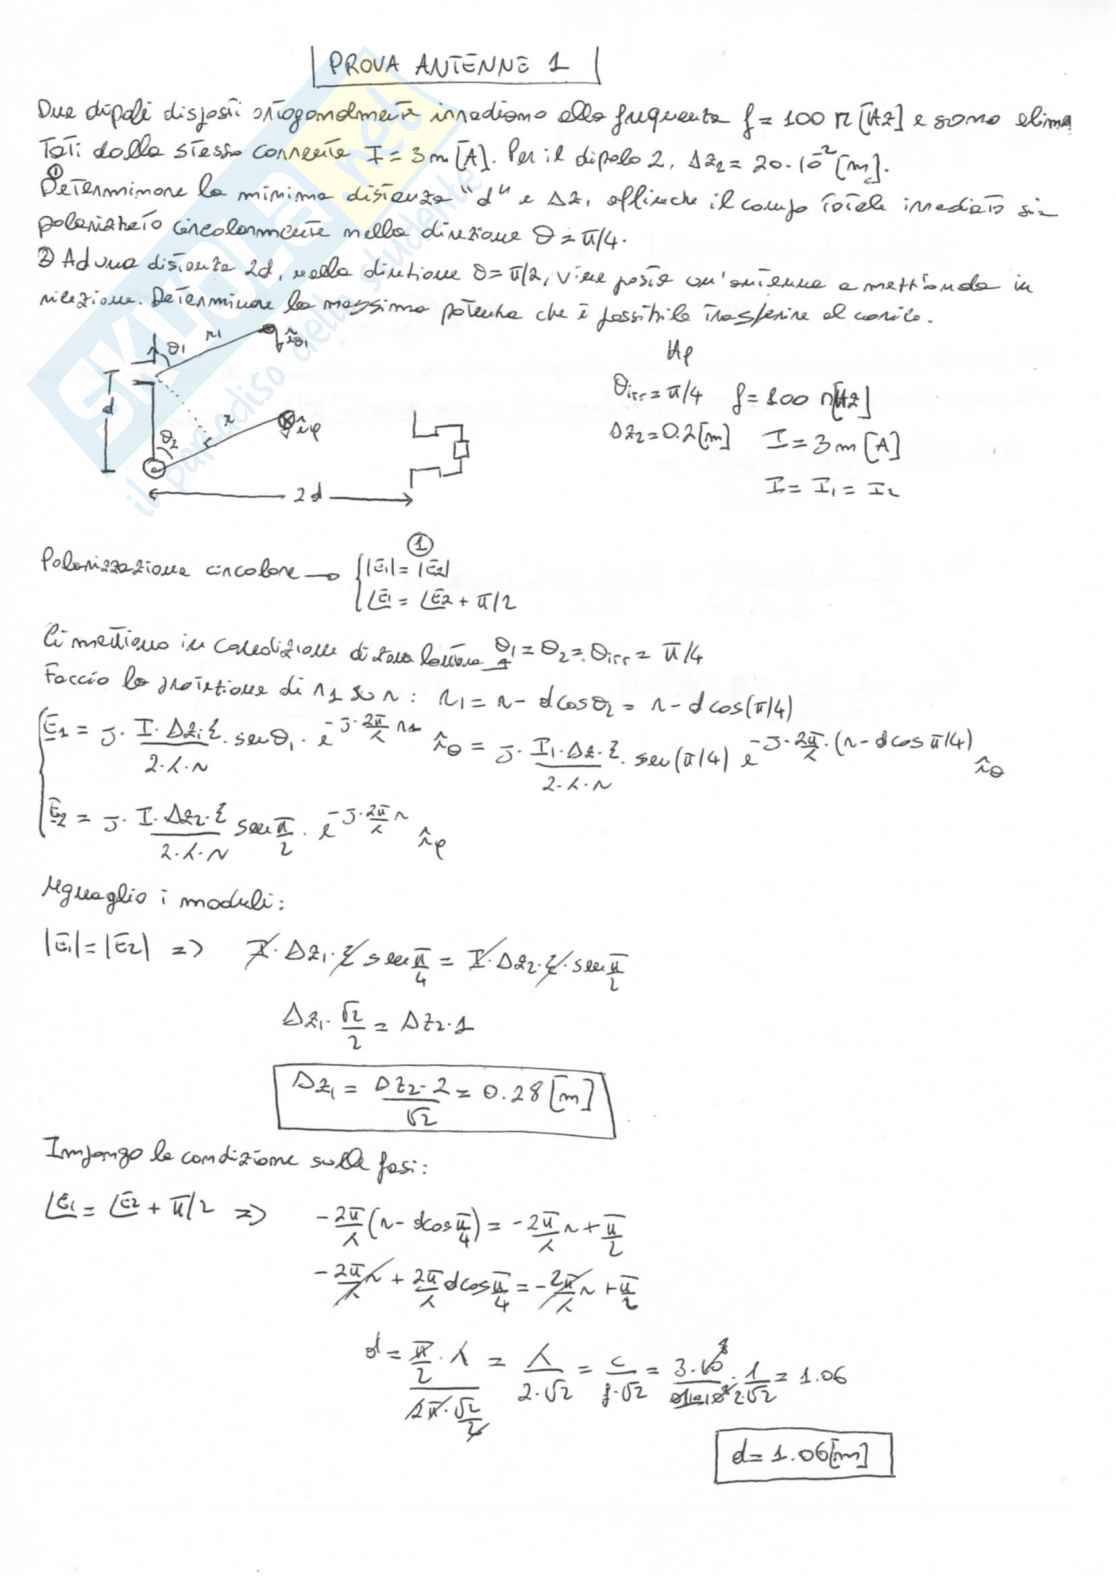 PROVA ANTENNE 1
Due dipoli disposti ortogonalmente irradiano alla frequenza f = 100 M[Hz] e sono alimen
tati dalla stessa corrente I = 3 m[A]. Per il dipolo 2, Δz₂ = 20·10⁻² [m].
① Determinare la minima distanza "d" e Δz₁ affinche il campo totale irradiato sia
polarizzato circolarmente nella direzione θ = π/4.
② Ad una distanza 2d, nella direzione θ = π/2, viene posta un'antenna a mezz'onda in
ricezione. Determinare la massima potenza che è possibile trasferire al carico.
θ₁ r₁ î_θ₁
d
θ₂ r î_φ
2d
Hp
θirr = π/4 f = 100 M[Hz]
Δz₂ = 0.2 [m] I = 3 m [A]
I = I₁ = I₂
①
Polarizzazione circolare → { |E̅₁| = |E̅₂|
∠E̅₁ = ∠E̅₂ + π/2
Ci mettiamo in condizione di zona lontana θ₁ = θ₂ = θirr = π/4
Faccio la proiezione di r₁ su r : r₁ = r - d cosθ₂ = r - d cos(π/4)
E̅₁ = J· I·Δz₁·ξ / 2·λ·r · senθ₁ · e^(-J·2π/λ r₁) î_θ = J· I₁·Δz·ξ / 2·λ·r · sen(π/4) e^(-J·2π/λ·(r - d cos π/4)) î_θ
E̅₂ = J· I·Δz₂·ξ / 2·λ·r sen π/2 · e^(-J·2π/λ r) î_φ
Uguaglio i moduli:
|E̅₁| = |E̅₂| => I·Δz₁·ξ sen π/4 = I·Δz₂·ξ·sen π/2
Δz₁· √2/2 = Δz₂·1
Δz₁ = Δz₂·2 / √2 = 0.28 [m]
Impongo la condizione sulle fasi:
∠E̅₁ = ∠E̅₂ + π/2 => -2π/λ (r - dcos π/4) = -2π/λ r + π/2
-2π/λ r + 2π/λ dcos π/4 = -2π/λ r + π/2
d = π/2 · λ / 2π·√2/2 = λ / 2·√2 = c / f·√2 = 3·10⁸ / · 1 / 2√2 = 1.06
d = 1.06 [m]